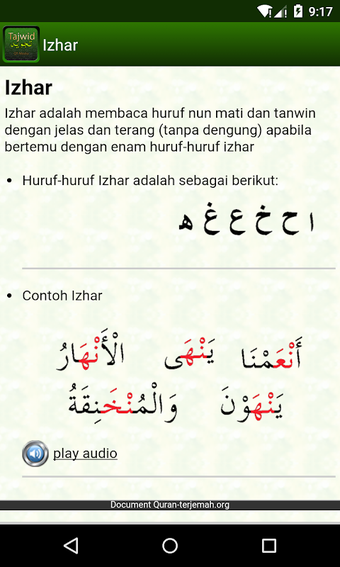 9:17
Tajwid
Izhar
Izhar
Izhar adalah membaca huruf nun mati dan tanwin
dengan jelas dan terang (tanpa dengung) apabila
bertemu dengan enam huruf-huruf izhar
• Huruf-huruf Izhar adalah sebagai berikut:
ا ح خ ع غ ه
• Contoh Izhar
أَنْعَمْنَا يَنْهَى الْأَنْهَارُ
يَنْهَوْنَ وَالْمُنْخَنِقَةُ
play audio
Document Quran-terjemah.org